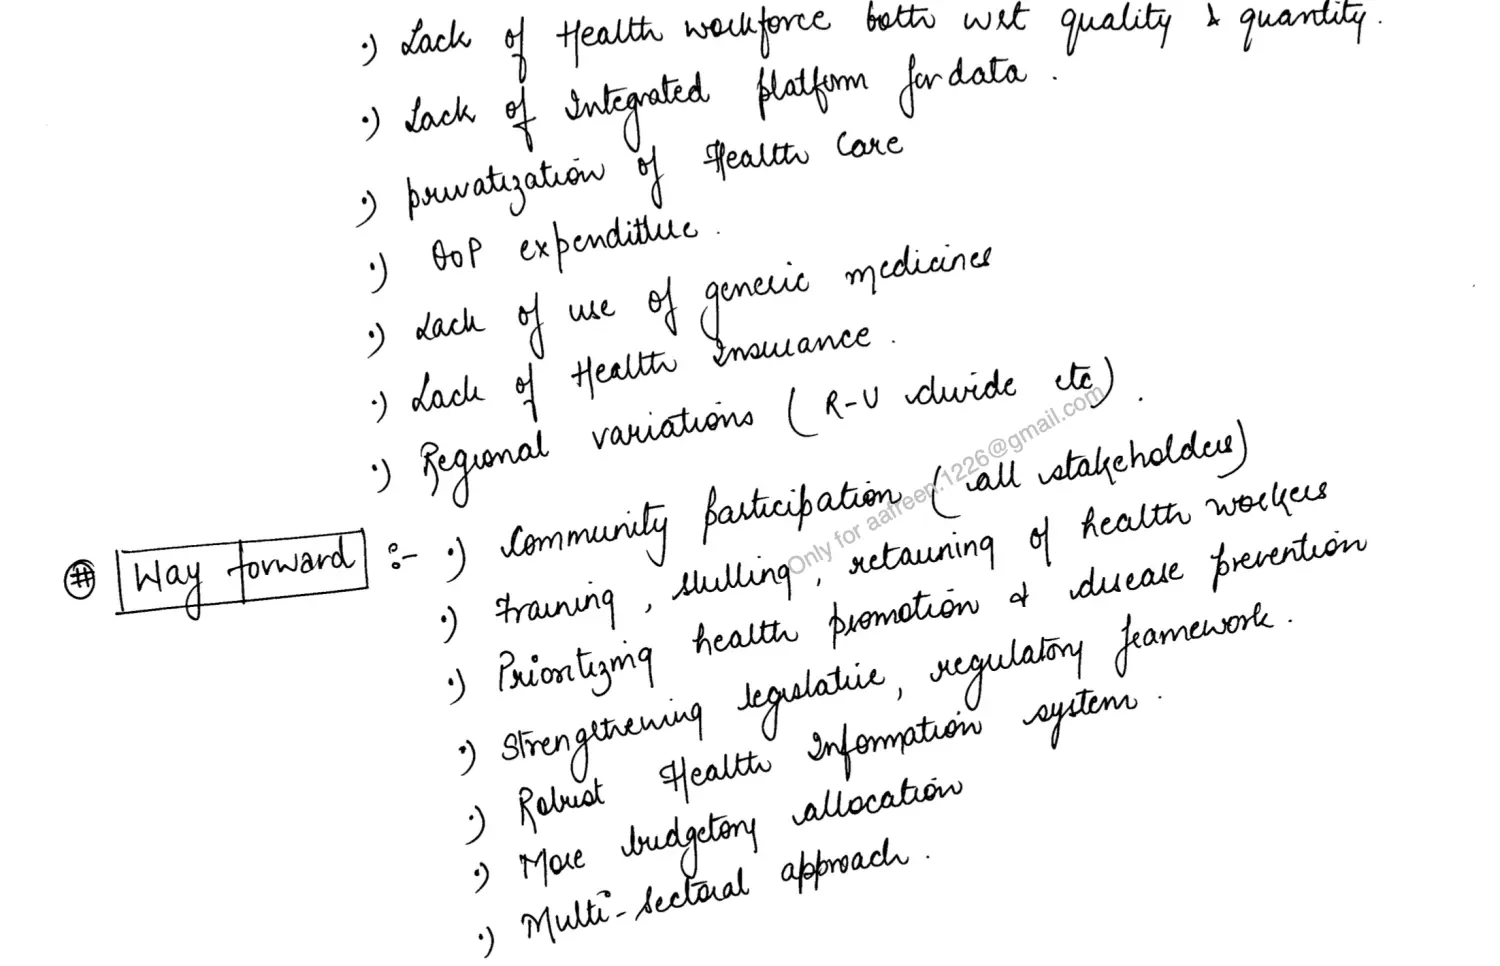 ·) Lack of Health workforce both wrt quality & quantity.
·) Lack of Integrated platform for data.
·) privatization of Health Care
·) OoP expenditure.
·) Lack of use of generic medicines
·) Lack of Health Insurance.
·) Regional variations (R-U divide etc).
# Way forward :- ·) Community participation (all stakeholders)
·) Training, skilling, retaining of health workers
·) Prioritizing health promotion & disease prevention
·) Strengthening legislative, regulatory framework.
·) Robust Health Information system.
·) More budgetory allocation
·) Multi-sectoral approach.
Only for aafreen.1226@gmail.com